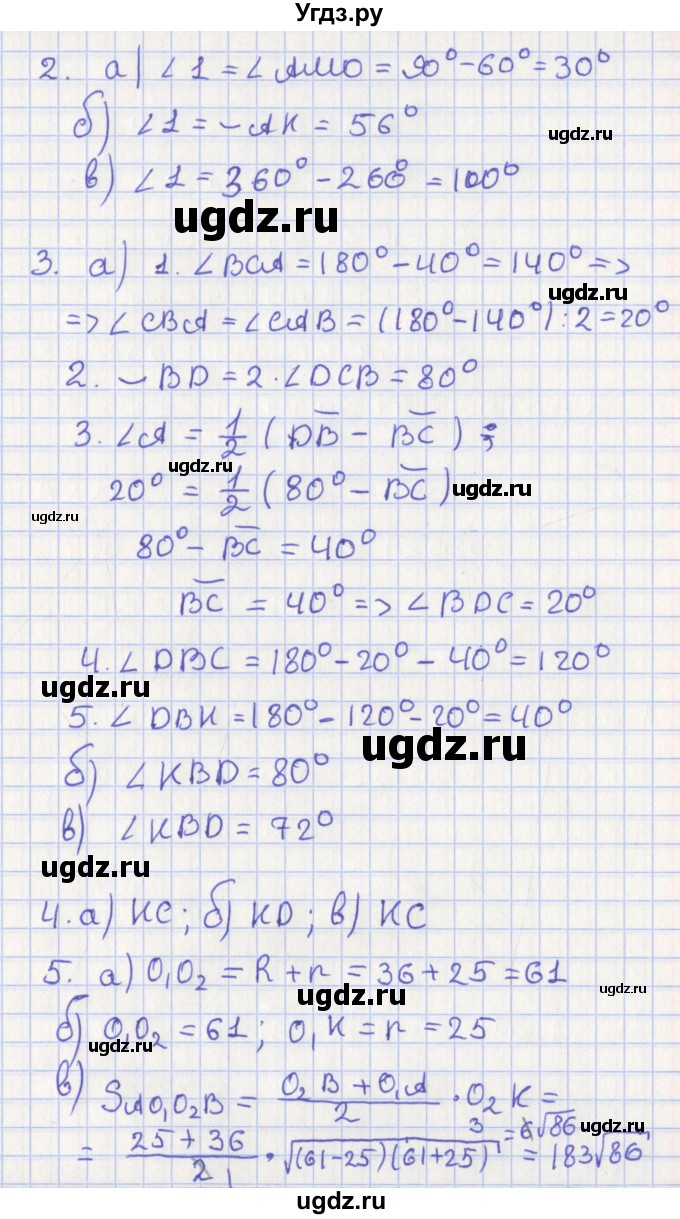 Угдз.ру
2. а) ∠1 = ∠AMO = 90° - 60° = 30°
б) ∠1 = ⌣AK = 56°
ugdz.ru
в) ∠1 = 360° - 260° = 100°
ugdz.ru
3. а) 1. ∠BCA = 180° - 40° = 140° =>
ugdz.ru
=> ∠CBA = ∠CAB = (180° - 140°) : 2 = 20°
2. ⌣BD = 2 · ∠DCB = 80°
3. ∠A = 1/2 (DB - BC) ;
ugdz.ru
20° = 1/2 (80° - BC)
ugdz.ru
ugdz.ru
80° - BC = 40°
BC = 40° => ∠BDC = 20°
4. ∠DBC = 180° - 20° - 40° = 120°
ugdz.ru
5. ∠DBK = 180° - 120° - 20° = 40°
ugdz.ru
б) ∠KBD = 80°
в) ∠KBD = 72°
ugdz.ru
4. а) KC ; б) KD ; в) KC
5. а) O₁O₂ = R + r = 36 + 25 = 61
ugdz.ru
ugdz.ru
б) O₁O₂ = 61 ; O₁K = r = 25
ugdz.ru
в) SAO₁O₂B = (O₂B + O₁A)/2 · O₂K =
= (25 + 36)/2 · √(61-25)(61+25) = 6√86 = 183√86
3
1
ugdz.ru
ugdz.ru